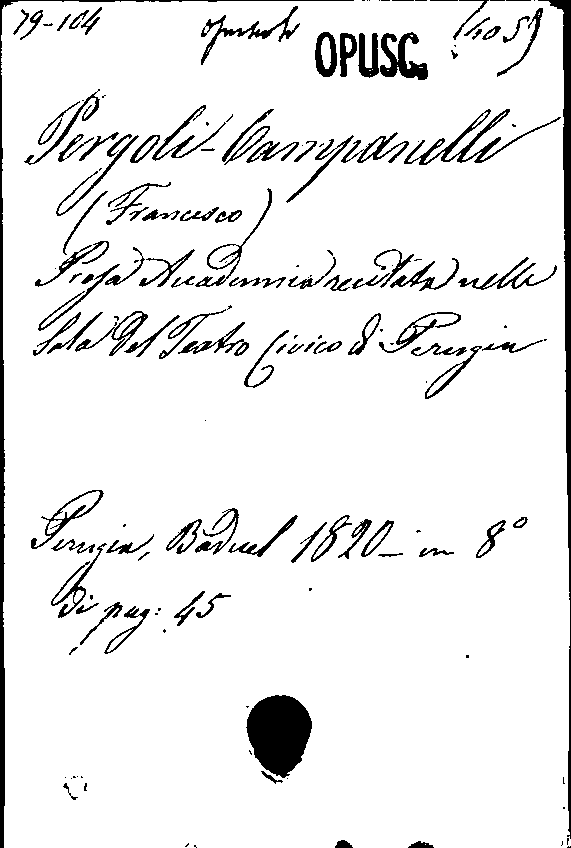 79-104 Opuscolo OPUSC. (405)
Pergoli-Campanelli
(Francesco)
Prosa Accademica recitata nella
Sala del Teatro Civico di Perugia
Perugia, Baduel 1820 – in 8°
di pag: 45